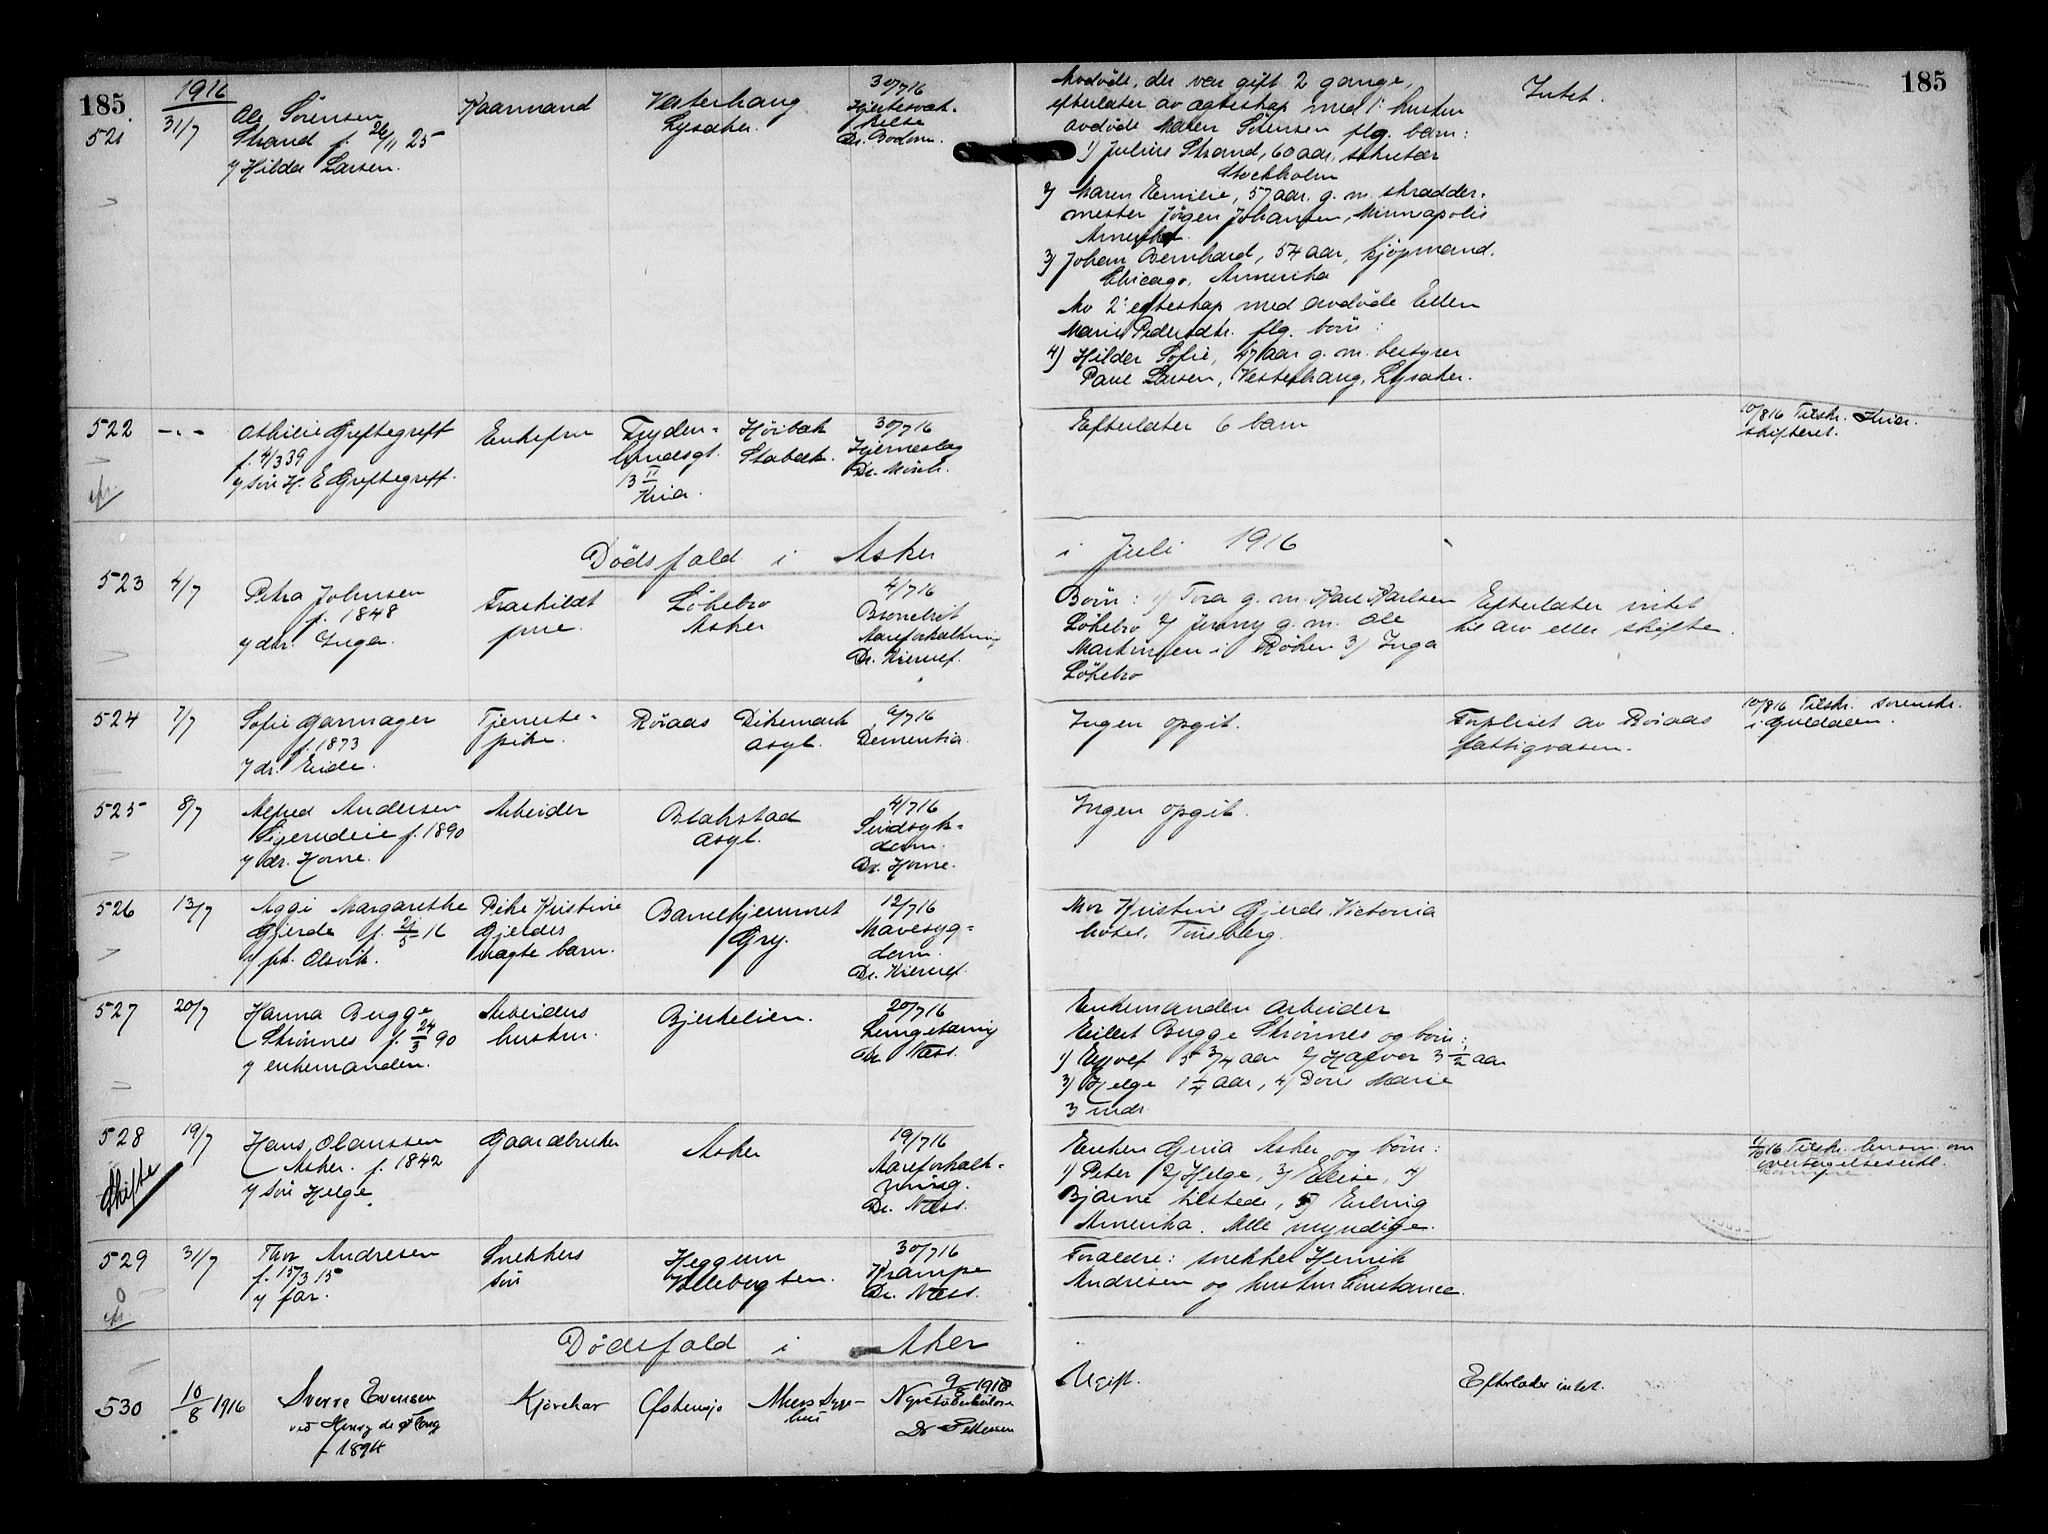 185
1916
185
521
31/7
Ole Sørensen
Strand f. 26/11 25
v/ Hilda Larsen.
Kaarmand
Vesterhaug
Lysaker.
30/7 16
Dr. Bodom.
Avdöde, der var gift 2 gange,
efterlater av ægteskap med 1ste hustru
avdöde Maren Sörensen flg. barn:
1) Julius Strand, 60 aar, sekretær
Stockholm
2) Maren Emilie, 57 aar. g. m. skrædder-
mester Jörgen Johansen, Minneapolis
Amerika.
3) Johan Bernhard, 54 aar, kjöpmand.
Chicago, Amerika
Av 2' egteskap med avdöde Ellen
Marie Pedersdtr. flg. börn:
4) Hilda Sofie, 47 aar g. m. bestyrer
Paul Larsen, Vesterhaug, Lysaker.
Intet.
522
-"-
Othilie Greftegreff
f. 4/3 39
v/ sön H. E Greftegreff.
Enkefru
Fryden-
lundsgt.
13 II
Kria.
Höibak
Stabæk.
30/7 16
Hjerneslag
Dr. Münch.
Efterlater 6 barn
10/8 16 Tilskr. Kria.
skifteret.
Dödsfald i Asker
i Juli 1916
523
4/7
Petra Johnsen
f. 1848
v/ dtr. Inga.
Fraskildt
frue.
Lökebo
Asker
4/7 16
Bronchit
Aareforkalkning
Dr. Kierulf.
Börn: 1) Tora g. m. Karl Karlsen
Lökebo 2) Jenny g. m. Ole
Martinsen i Röken 3) Inga
Lökebo
Efterlater intet
til arv eller skifte.
524
7/7
Sofie Garmager
f. 1873
v/ dr. Eide.
Tjeneste-
pike.
Röraas
Dikemark
asyl.
6/7 16
Dementia.
Ingen opgit.
Forpleiet av Röraas
fattigvæsen.
10/8 16 Tilskr. sorenskr.
i Guldalen.
525
8/7
Alfred Andersen
f. 1890
v/ dr. Horne.
Arbeider
Blakstad
asyl.
4/7 16
Sindsyk-
dom.
Dr. Horne.
Ingen opgit.
526
13/7
Aggi Margarethe
Gjerde f. 21/5 16
v/ frk. Olsvik.
Pike Kristine
Gjerdes
uægte barn.
Barnehjemmet
Gry.
12/7 16
Mavesyg-
dom.
Dr. Kierulf.
Mor Kristine Gjerde Victoria
hotel. Tönsberg.
527
20/7
Hanna Bugge
Strönnes f. 24/3 90
v/ enkemanden.
Arbeiders
hustru.
Bjerkelien.
20/7 16
Lungetæring
Dr Næss.
Enkemanden arbeider
Eilert Bugge Strönnes og börn:
1) Eyolf 5 3/4 aar 2) Halvor 3 1/2 aar
3) Helge 1 1/4 aar, 4) Doris Marie
3 mdr.
528
Skifte
19/7
Hans Olaussen
Asker. f. 1842
v/ sön Helge.
Gaardbruker
Asker
19/7 16
Aareforkalk-
ning.
Dr. Næss.
Enken Guria Asker og börn:
1) Peter 2) Helge, 3) Elise, 4)
Bjarne tilstede, 5) Erling
Amerika. Alle myndige.
Tilskr. lensm. om
529
31/7
Thor Andresen
f. 15/3 15
v/ far.
Snekkers
sön
Heggum
Vollebugten.
30/7 16
Krampe
Dr. Næss.
Forældre: snekker Henrik
Andresen og hustru Constance.
Dödsfald i Aker
530
10/8 1916
Sverre Evensen
ved Henry de Flong
f 1894
Kjörekar
Østensjø
Akers Syge-
hus
9/8 1916
Nyretuberkulose
Dr Pettersen
Ugift.
Efterlader intet.